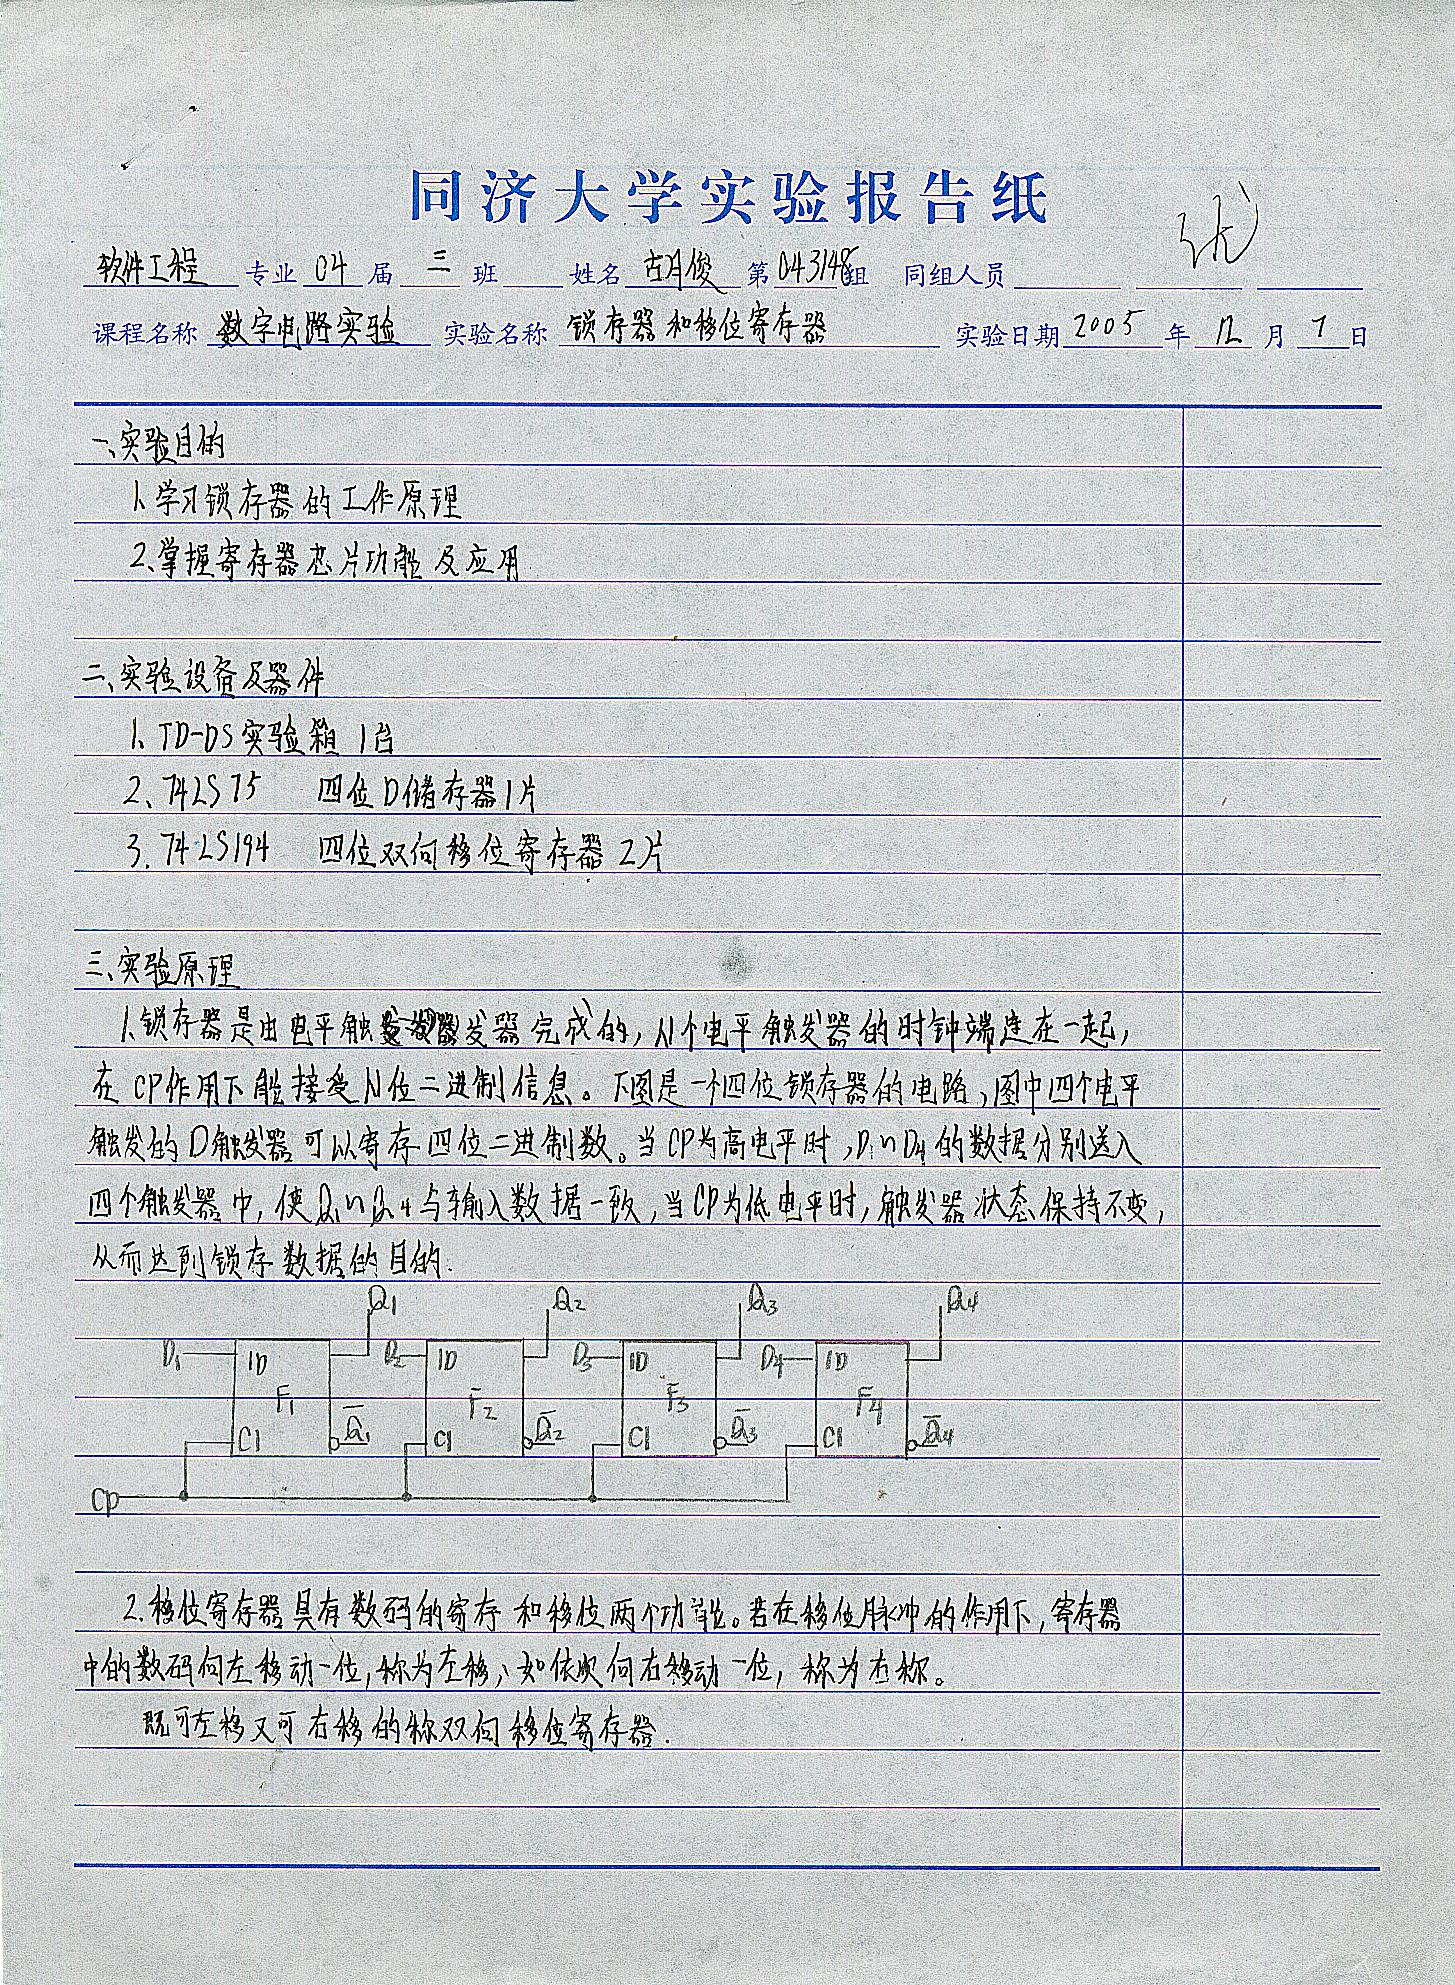 同济大学实验报告纸
优
软件工程 专业 04 届 三 班 姓名 胡俊 第 043148 组 同组人员
课程名称 数字电路实验 实验名称 锁存器和移位寄存器 实验日期 2005 年 12 月 7 日
一、实验目的
1、学习锁存器的工作原理
2、掌握寄存器芯片功能及应用
二、实验设备及器件
1、TD-DS实验箱 1台
2、74LS75 四位D储存器1片
3、74LS194 四位双向移位寄存器 2片
三、实验原理
1、锁存器是由电平触发器完成的,N个电平触发器的时钟端连在一起,
在CP作用下能接受N位二进制信息。下图是一个四位锁存器的电路,图中四个电平
触发的D触发器可以寄存四位二进制数。当CP为高电平时,D1~D4的数据分别送入
四个触发器中,使Q1~Q4与输入数据一致,当CP为低电平时,触发器状态保持不变,
从而达到锁存数据的目的.
Q1 Q2 Q3 Q4
D1 1D D2 1D D3 1D D4 1D
F1 F2 F3 F4
C1 Q̅1 C1 Q̅2 C1 Q̅3 C1 Q̅4
CP
2、移位寄存器具有数码的寄存和移位两个功能。若在移位脉冲的作用下,寄存器
中的数码向左移动一位,称为左移,如依次向右移动一位,称为右称。
既可左移又可右移的称双向移位寄存器.